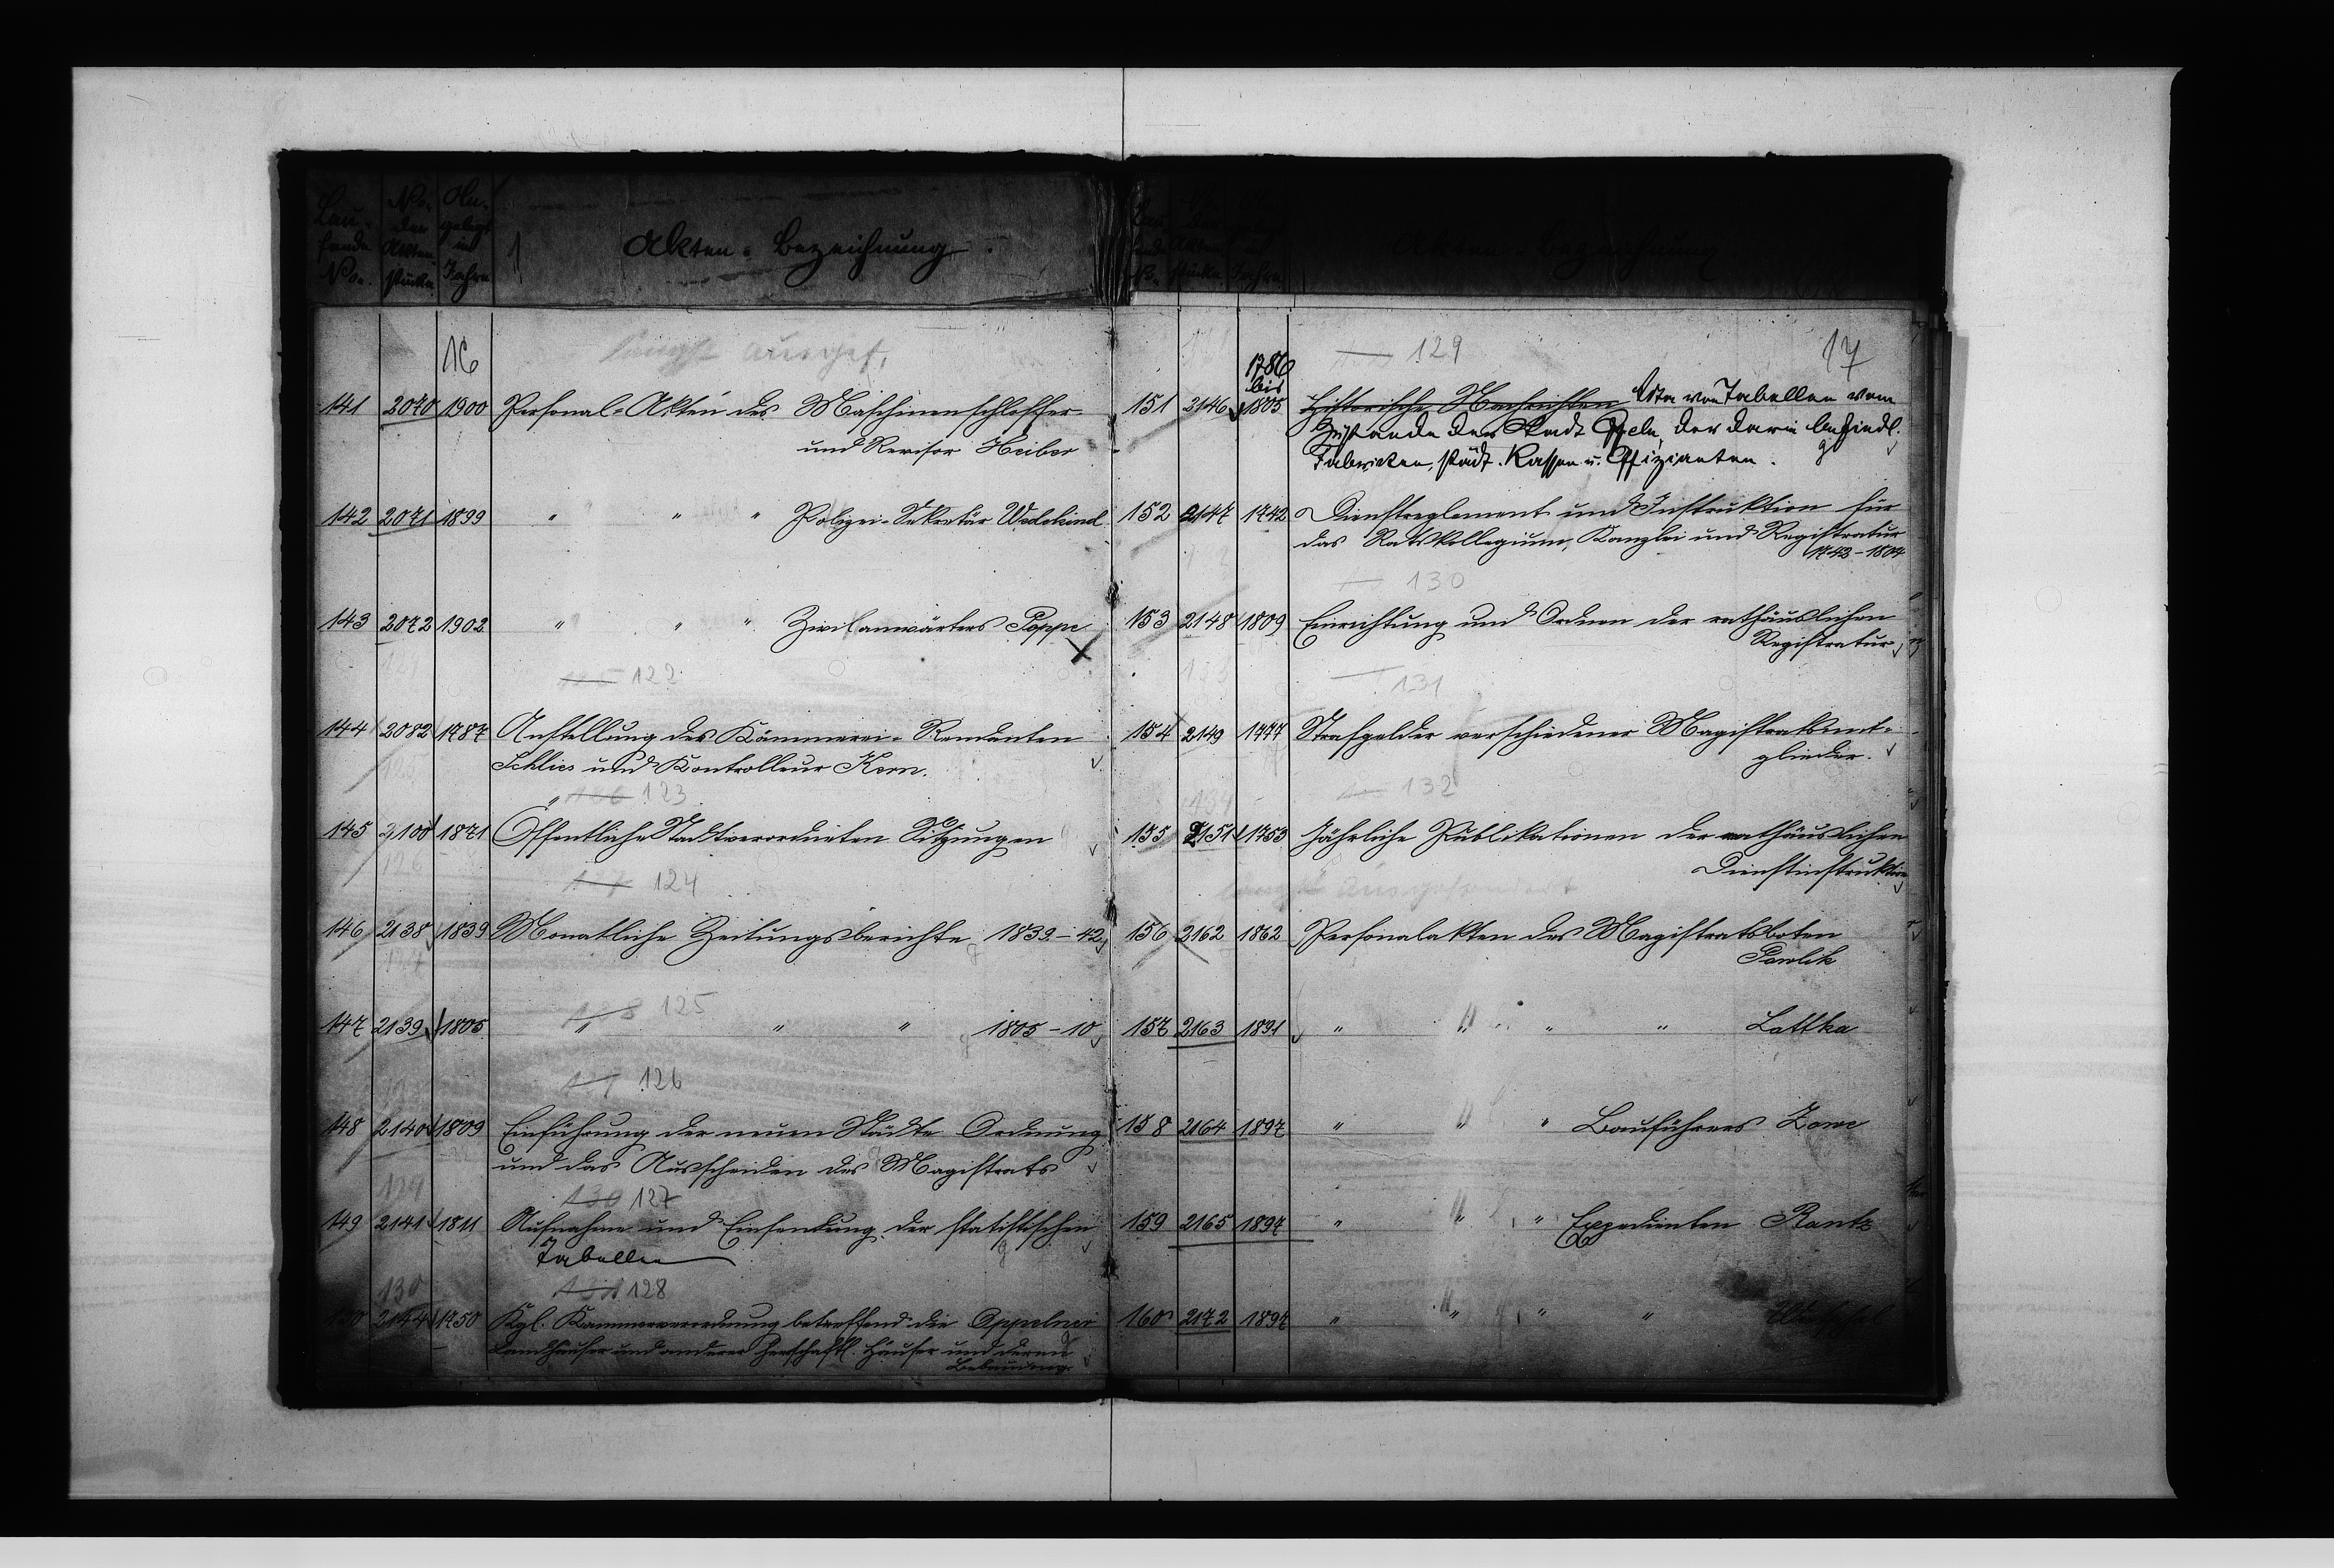 Lau-
fende
No.
No.
der
Akten-
stücke.
An-
gelegt
im
Jahre
Akten-Bezeichnung.
16
längst ausgef.
141 2070 1900 Personal-Akten des Maschinenschlosser
und Revisor Heiber
142 2071 1899 " " " Polizei-Sekretär Wedekind
143 2072 1902 " " " Zivilanwärters Poppe
122
144 2082 1787 Anstellung des Kämmerei-Rendanten
Schlies und Kontrolleur Kern.
123
145 2100 1871 Öffentliche Stadtverordneten Sitzungen
124
146 2138 1839 Monatliche Zeitungsberichte 1839-42
125
147 2139 1805 " " " 1805-10
126
148 2140 1809 Einführung der neuen Städte Ordnung
und das Ausscheiden des Magistrats
130 127
149 2141 1811 Aufnahme und Einsendung der statistischen
Tabellen
130 131 128
150 2144 1750 Kgl. Kammerverordnung betreffend die Oppelner
Landhäuser und anderer herrschaftl. Häuser und deren
Bebauung.
Akten-Bezeichnung
129 17
1786
bis
151 2146 1805 Historische Nachrichten Acta von Tabellen vom
Zustande der Stadt Oppeln, der darin befindl.
Fabriken, städt. Kassen u. Offizianten.
152 2147 1742 Dienstreglement und Instruktion für
das Ratskollegium, Kanzlei und Registratur
1742-1804
130
153 2148 1809 Einrichtung und Ordnen der rathäuslichen
Registratur
131
154 2149 1777 Strafgelder verschiedener Magistratsmit-
glieder.
132
155 2151 1753 Jährliche Publikationen der rathäuslichen
Dienstinstruktion
längst ausgesondert
156 2162 1862 Personalakten des Magistratsboten
Pawlik
157 2163 1891 " " " " Lattka
158 2164 1897 " " " Bauführers Zowe
159 2165 1897 " " " Expedienten Rantz
160 2172 1897 " " " "